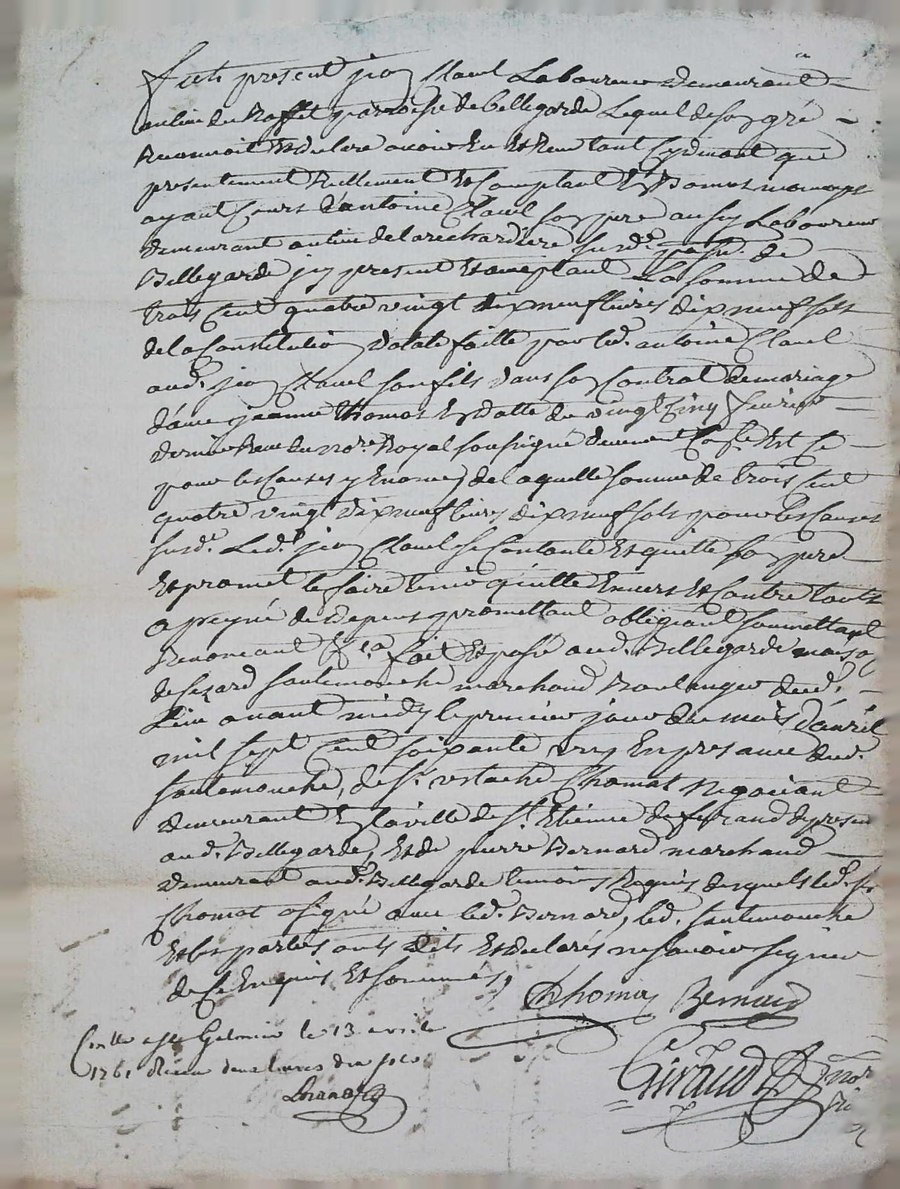 fut present jean Clavel Laboureur demeurant
au lieu du Raffet parroisse de bellegarde Lequel de son gré
Reconnoit Et declare avoir Eu Et Receu tant cydevant que
presentement Reellement Et Comptant En Bonnes monnoyes
ayant Cours d'antoine Clavel son pere aussy Laboureur
demeurant au lieu de la rechardiere susd. parr. de
Bellegarde jcy present Et acceptant La somme de
trois Cent quatre vingt dix neuf livres dix neuf sols
de la Constitution dotale faitte par led. antoine Clavel
aud. jean Clavel son fils dans son Contrat de mariage
avec jeanne Thomas En datte du vingt Cinq fevrier
dernier Receu du nore. Royal soussigné deument Et Ce
pour les Causes y Enoncés de laquelle somme de trois Cent
quatre vingt dix neuf livres dix neuf sols pour les Causes
susd. Led. jean Clavel se Contente Et quitte son pere
Et promet le faire tenir quitte Envers Et Contre touts
a peyne de depens promettant obligeant soumettant
Renoncant &ca fait Et passé aud. Bellegarde maison
de sautemouche marchand Boulanger dud.
Lieu avant midy le premier jour du mois d'avril
mil sept Cent soixante un En presance dud.
sautemouche, de sr. Chomat Negociant
demeurant En la ville de St. Etienne de furand de present
aud. Bellegarde, Et de pierre Bernard marchand
demeurant aud. Bellegarde temoins Requis desquels led. sr.
Chomat a signé avec led. Bernard, led. sautemouche
Et les parties onts dits Et declarés ne savoir signer
de Ce Enquis Et sommés,
Chomat Bernard
Conlle a St Galmier le 13 avril
1761 Receu deux livres dix sols
Giraud nore